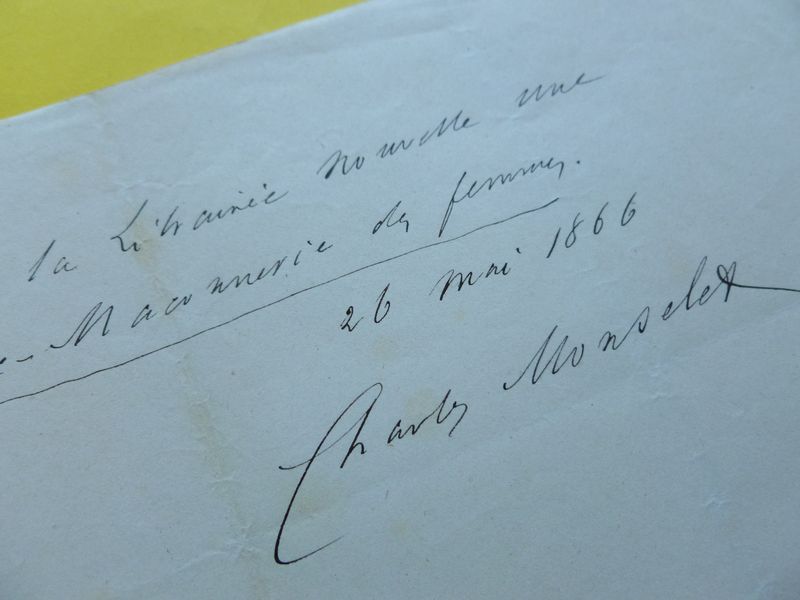 la Librairie nouvelle une
- Maconnerie des femmes.
26 mai 1866
Charles Monselet